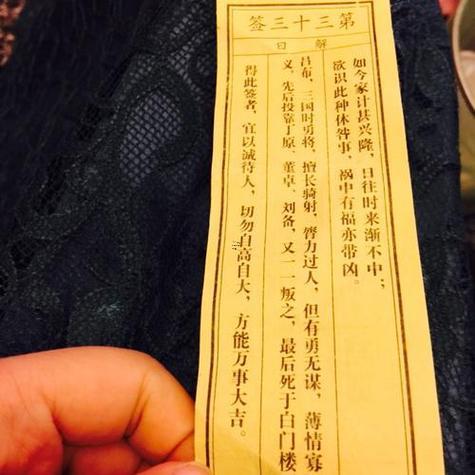 第三十三签
解曰
如今家计甚兴隆，日往时来渐不中；
欲识此种休咎事，祸中有福亦带凶。
吕布，三国时勇将，擅长骑射，膂力过人，但有勇无谋，薄情寡
义，先后投靠丁原、董卓、刘备，又一一叛之，最后死于白门楼
得此签者，宜以诚待人，切勿自高自大，方能万事大吉。